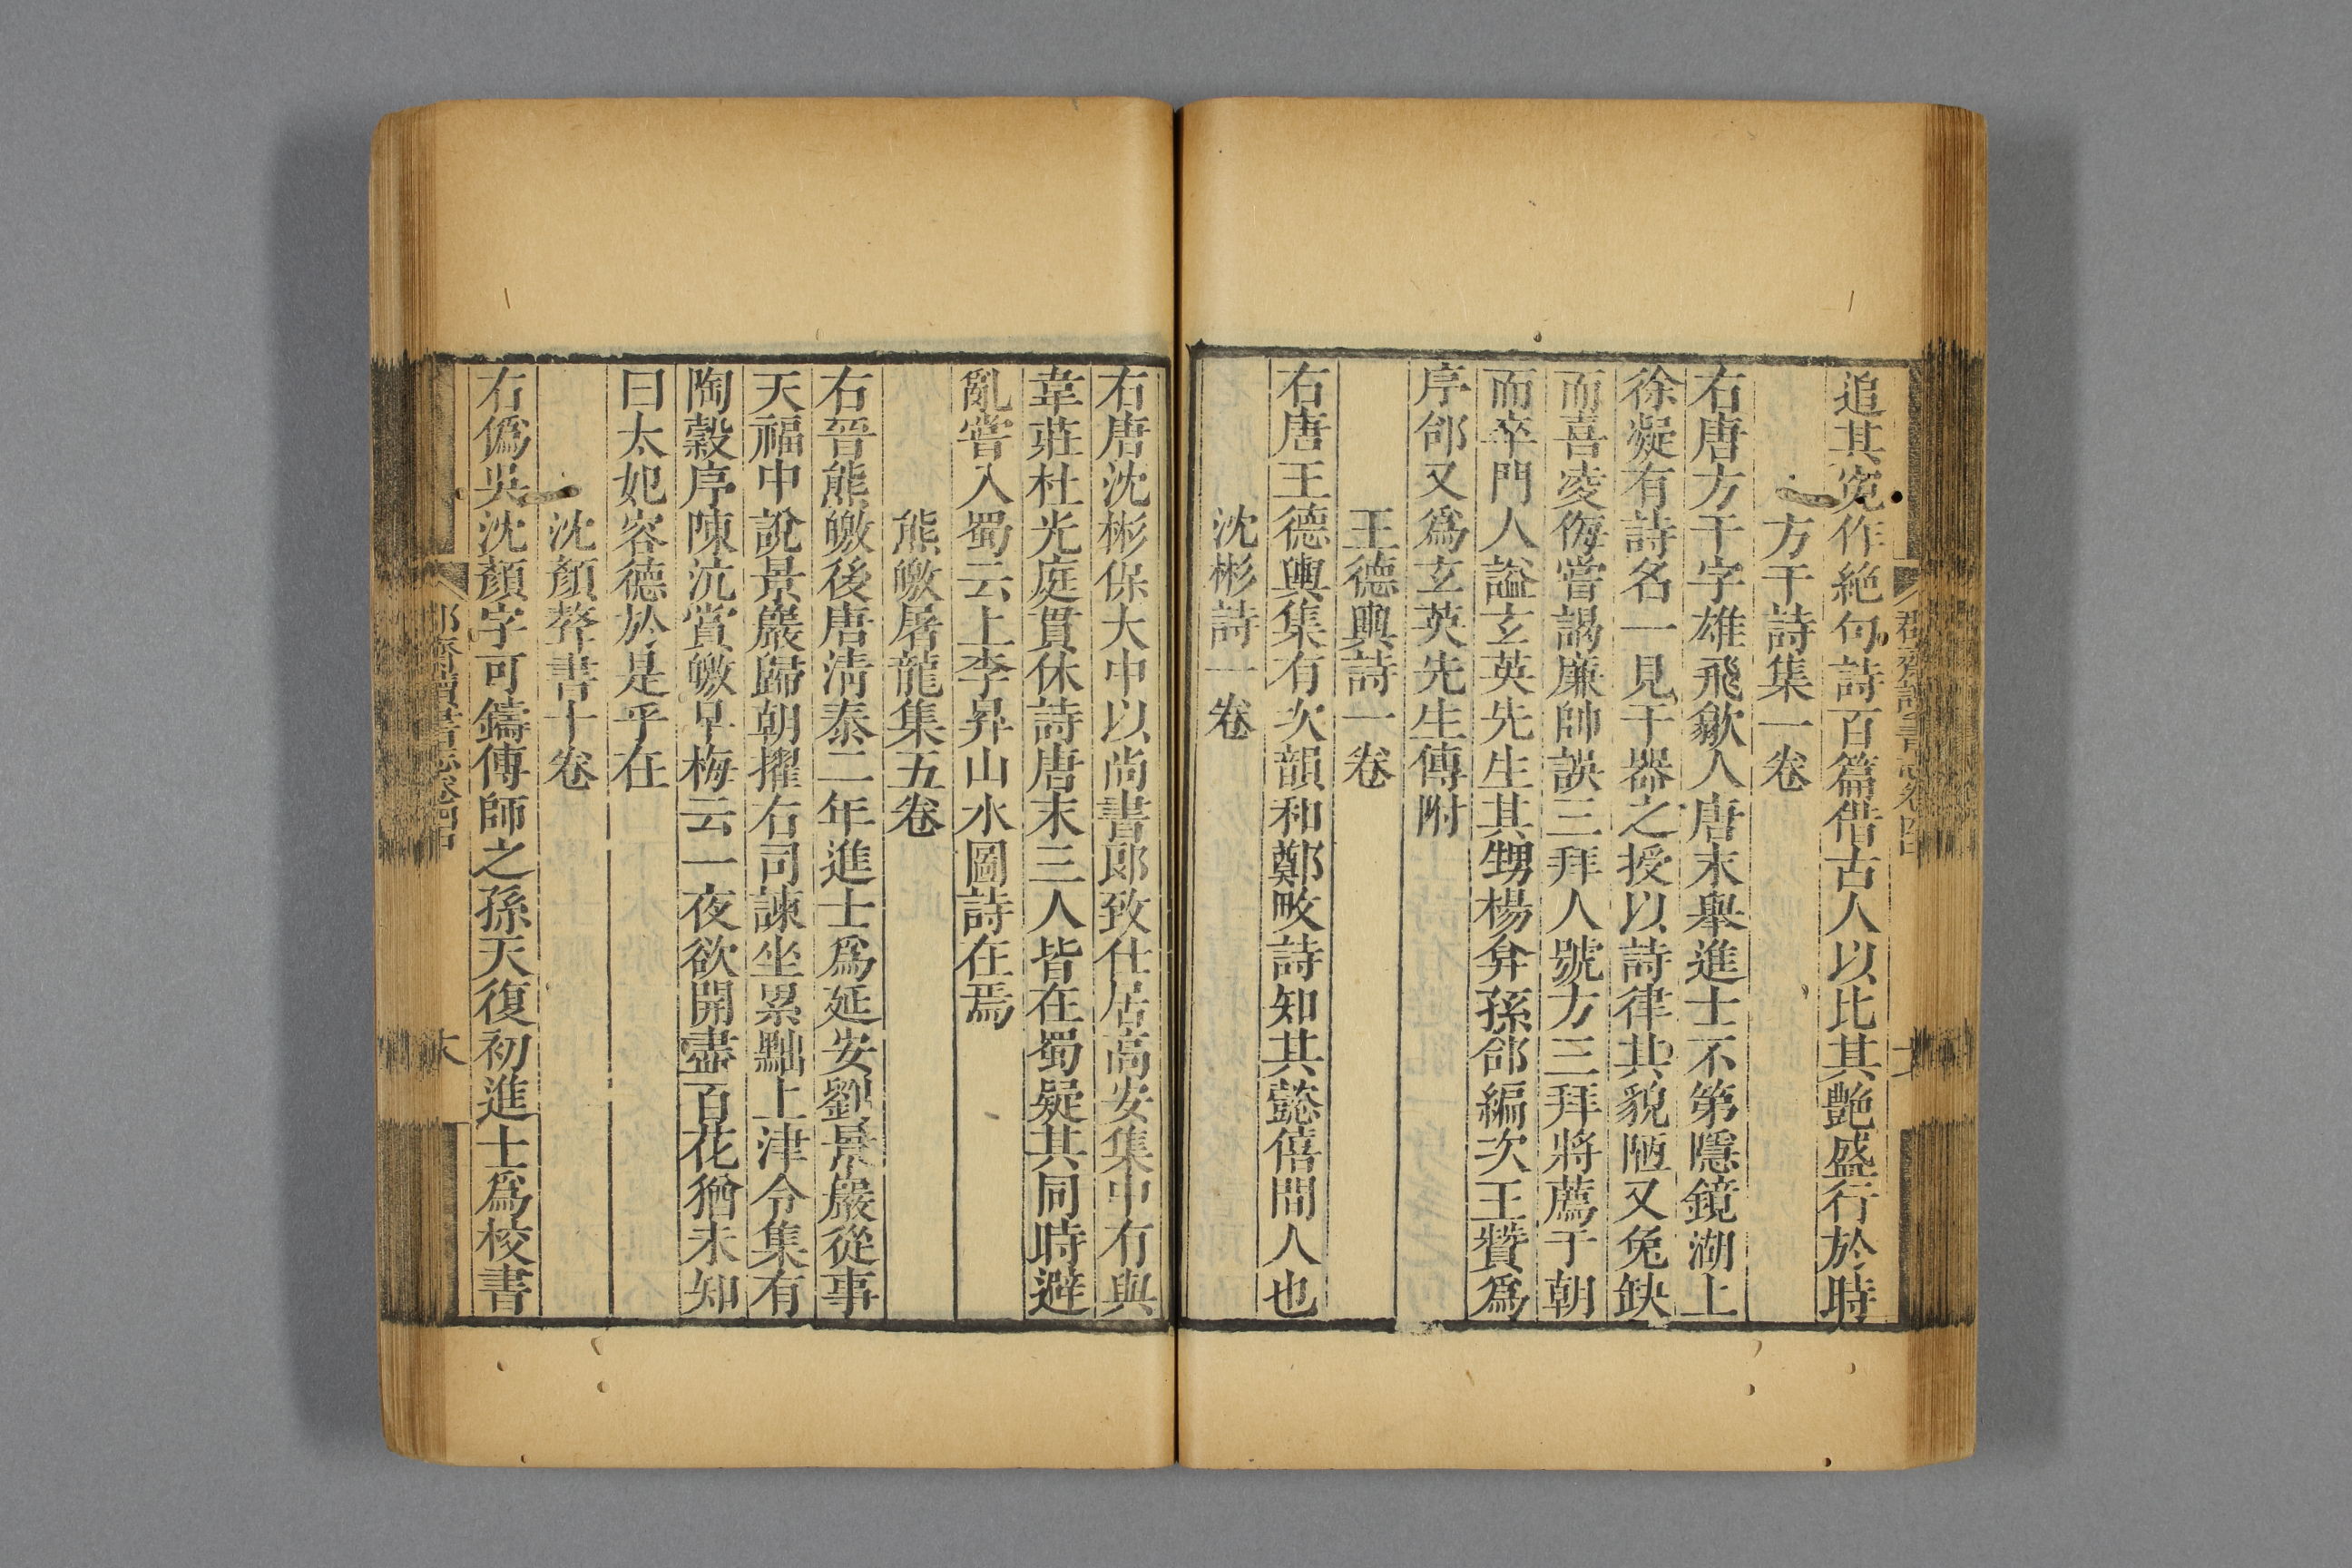 追其寃作絶句詩百篇借古人以比其艷盛行於時
方干詩集一卷
右唐方干字雄飛歙人唐末舉進士不第隱鏡湖上
徐凝有詩名一見干器之授以詩律其貌陋又兔缺
而喜凌侮嘗謁廉帥誤三拜人號方三拜將薦于朝
而卒門人謚玄英先生其甥楊弇孫郃編次王贊爲
序郃又爲玄英先生傳附
王德輿詩一卷
右唐王德輿集有次韻和鄭畋詩知其懿僖間人也
沈彬詩一卷
右唐沈彬保大中以尚書郎致仕居高安集中有與
韋莊杜光庭貫休詩唐末三人皆在蜀疑其同時避
亂嘗入蜀云上李昇山水圖詩在焉
熊皦屠龍集五卷
右晉熊皦後唐清泰二年進士爲延安劉景巖從事
天福中說景巖歸朝擢右司諫坐累黜上津令集有
陶穀序陳沆賞皦早梅云一夜欲開盡百花猶未知
曰太妃容德於是乎在
沈顏聱書十卷
右僞吳沈顏字可鑄傳師之孫天復初進士爲校書